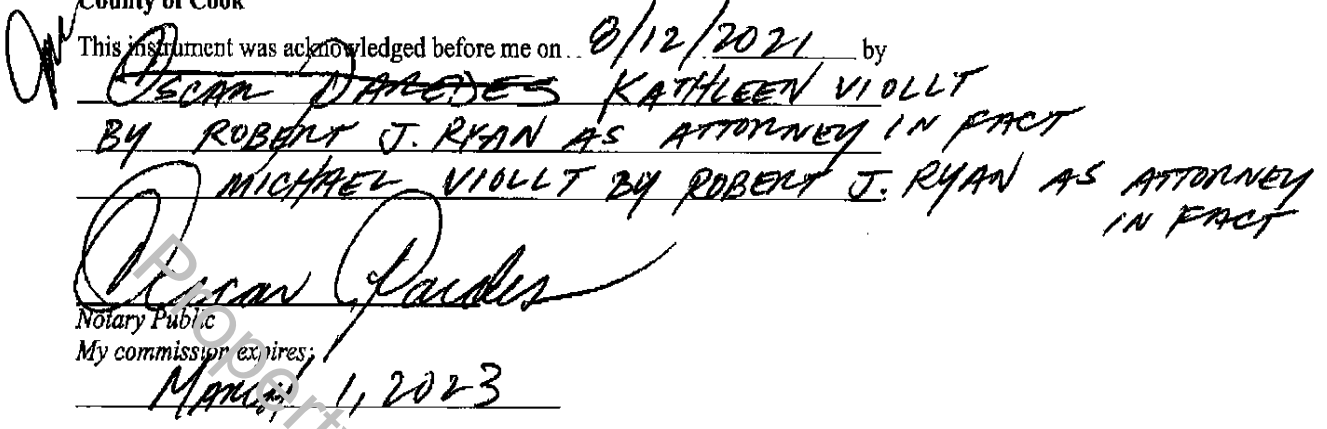 County of Cook
This instrument was acknowledged before me on 8/12/2021 by
OSCAR PAREDES KATHLEEN VIOLLT
BY ROBERT J. RYAN AS ATTORNEY IN FACT
MICHAEL VIOLLT BY ROBERT J. RYAN AS ATTORNEY
IN FACT
Oscar Paredes
Notary Public
My commission expires:
March 1, 2023
Propert